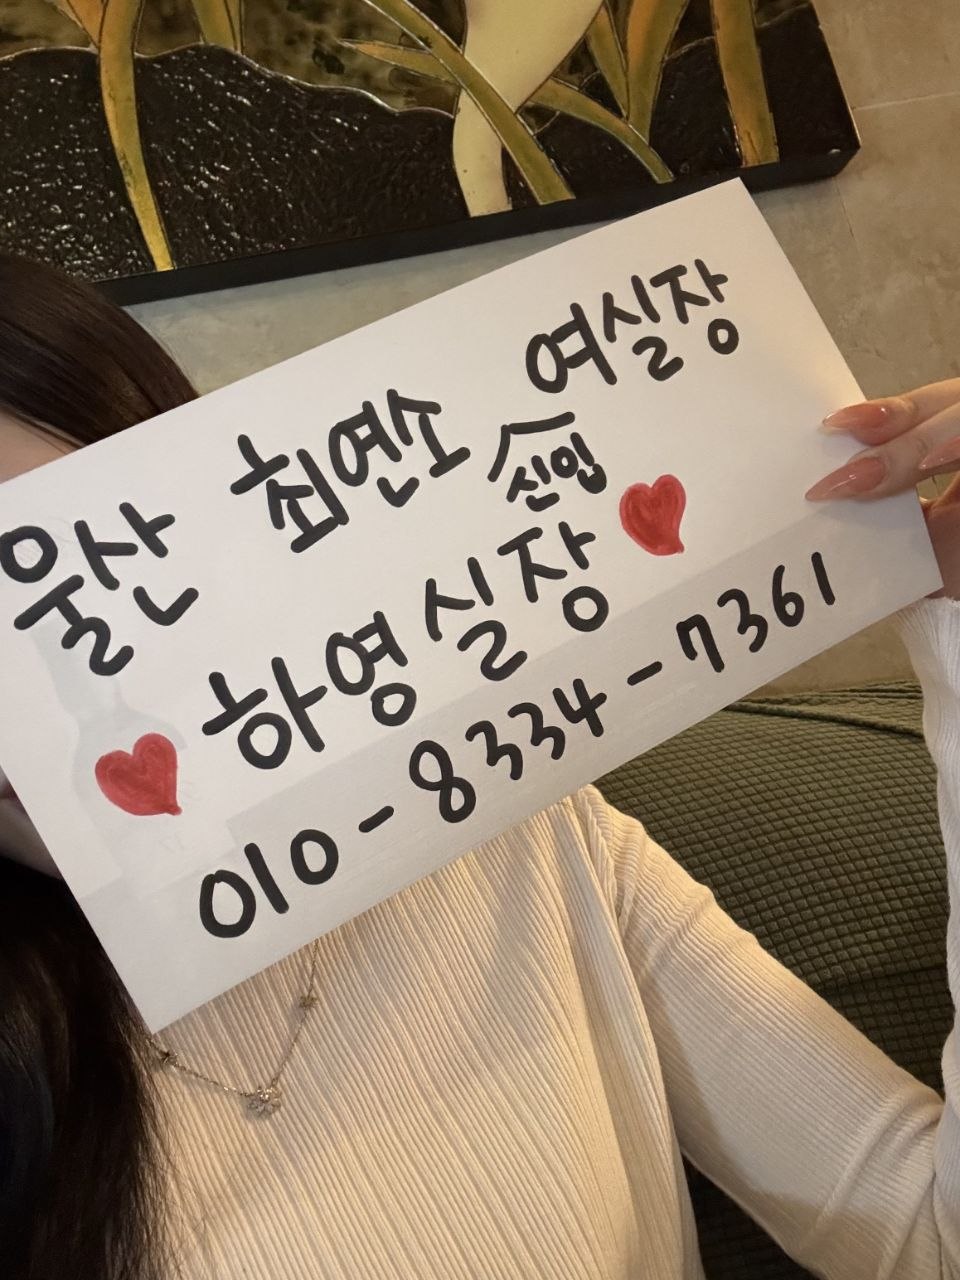 울산 최연소 여실장
신입
♥ 하영실장 ♥
010-8334-7361